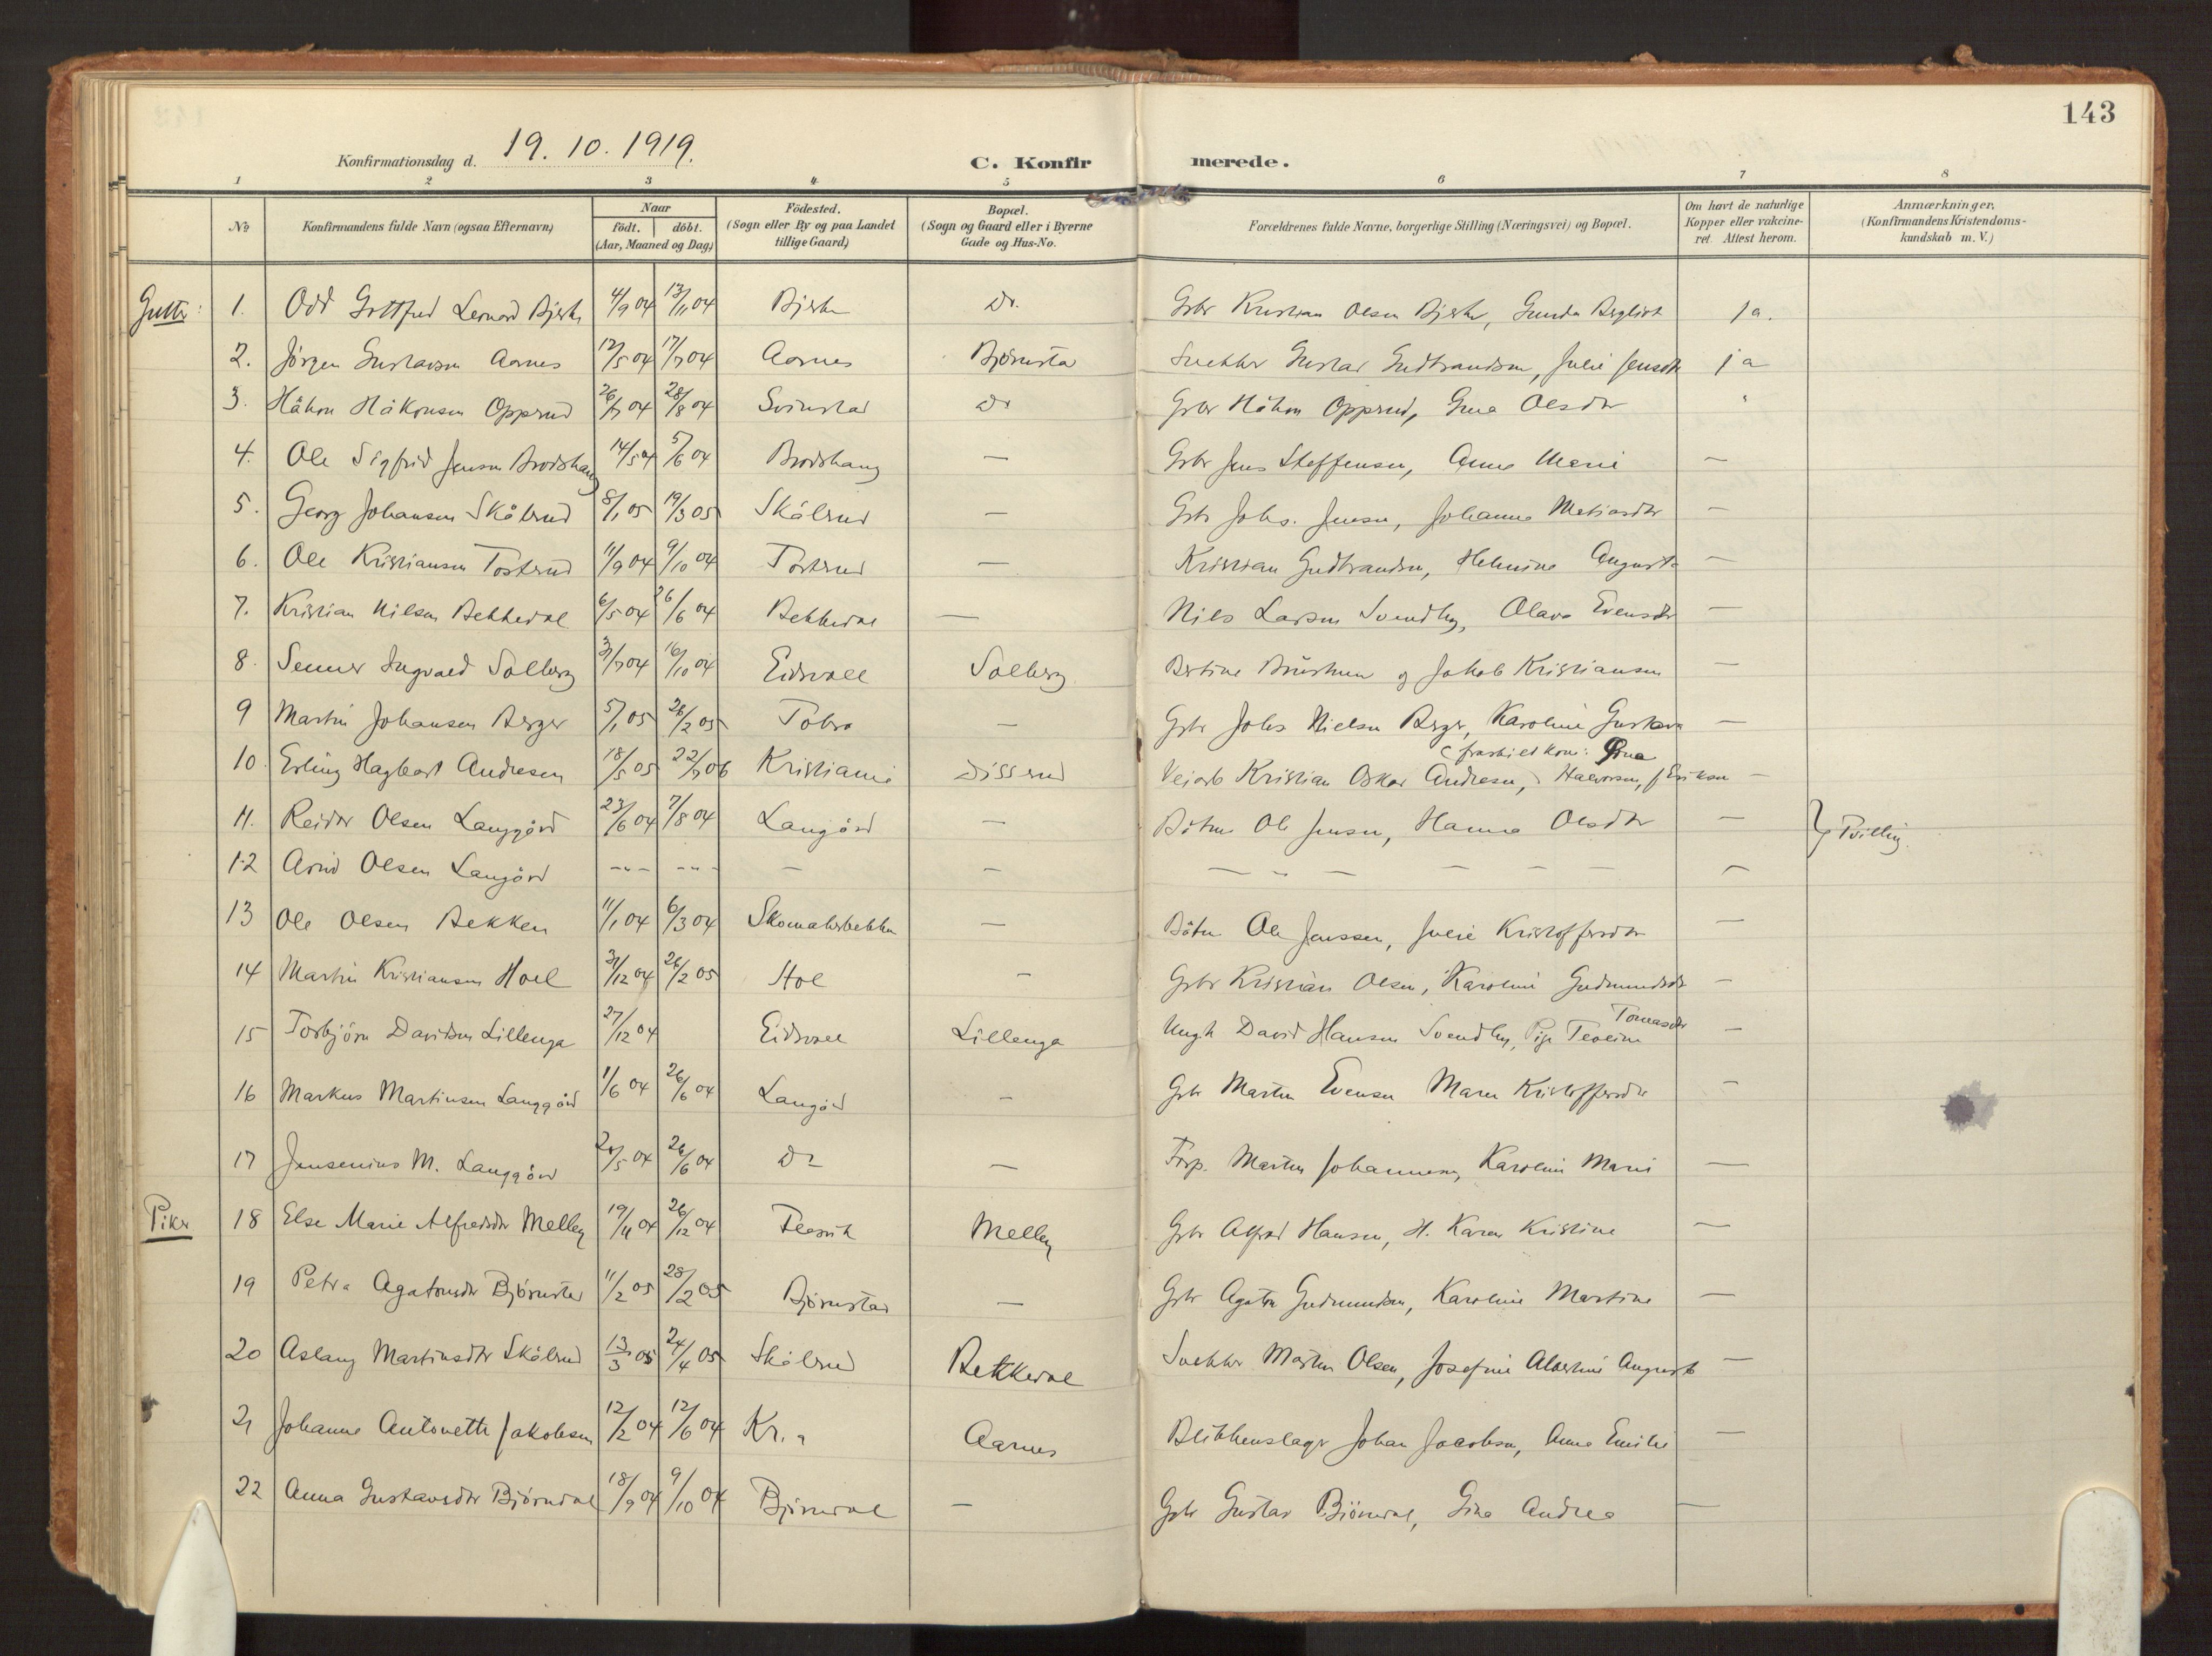 143
Konfirmationsdag d. 19. 10. 1919.
C. Konfirmerede.
1 2 3 4 5 6 7 8
No
Konfirmandens fulde Navn (ogsaa Efternavn)
Naar födt. döbt. (Aar, Maaned og Dag)
Födested. (Sogn eller By og paa Landet tillige Gaard)
Bopæl. (Sogn og Gaard eller i Byerne Gade og Hus-No.
Forældrenes fulde Navne, borgerlige Stilling (Næringsvei) og Bopæl.
Om havt de naturlige Kopper eller vakcineret. Attest herom.
Anmærkninger. (Konfirmandens Kristendomskundskab m. V.)
Gutter:
1. Odd Gottfred Leonard Bjerke 4/9 04 13/11 04 Bjerke Do. Gbr Kristian Olsen Bjerke, Gunda Bergliot ja.
2. Jörgen Gustavsen Aarnes 12/5 04 17/7 04 Aarnes Björnsta Snekker Gustav Gudbrandsen, Julie Jensdtr ja
3. Håkon Håkonsen Opperud 26/7 04 28/8 04 Svinstad Do Gbr Håkon Opperud, Olsdtr "
4. Ole Sigfrid Jensen Brodshaug 14/5 04 5/6 04 Brodshaug — Gbr Jens Steffensen, Anne Marie —
5. Georg Johansen Skålrud 8/1 05 19/3 05 Skålrud — Gbr Johs. Jensen, Johanne Matiasdtr —
6. Ole Kristiansen Tosterud 11/9 04 9/10 04 Tosterud — Kristian Gudbrandsen, Helmine Augusta —
7. Kristian Nilsen Bekkedal 6/5 04 26/6 04 Bekkedal — Nils Larsen Svendby, Olava Evensdtr —
8. Senner Ingvald Solberg 3/7 04 16/10 04 Eidsvoll Solberg Bertine og Jakob Kristiansen —
9 Martin Johansen Berger 5/1 05 26/2 05 Tobro — Gbr Johs Nielsen Berger, Karoline Gustava —
10. Erling Hagbart Andresen 18/5 05 22/7 06 Kristiania Disserud Veiarb Kristian Oskar Andresen, Halvorsen, f. Eriksen —
(fraskilt kone:
11. Reidar Olsen Langgård 23/6 04 7/8 04 Langård — Ole Jensen, Hanna Olsdtr — } Tvilling.
12 Arvid Olsen Langård --- --- — — — — — — — — —
13 Ole Olsen Bekken 11/1 04 6/3 04 Skomakerbekken — Ole Jenssen, Julie Kristoffersdtr —
14 Martin Kristiansen Hoel 31/12 04 26/2 05 Hol — Gbr Kristian Olsen, Karoline Gudmundsdtr —
15 Torbjörn Davidsen Lillenga 27/12 04 Eidsvoll Lillenga Ungk David Hansen Svendby, Pige Teoline Tomasdtr —
16 Markus Martinsen Langgård 1/6 04 26/6 04 Langård — Gbr Martin Evensen Maren Kristoffersdtr —
17 Jensenius M. Langgård 2/5 04 26/6 04 Do — Forp. Martin Johannesen, Karoline Marie —
Piker
18 Else Marie Alfredsdtr Melleby 19/11 04 26/12 04 Melleby Gbr Alfred Hansen, H. Karen Kristine —
19 Petra Agatonsdtr Björnstad 11/2 05 28/2 05 Björnstad — Gbr Agaton Gudmundsen, Karoline Martine —
20 Aslaug Martinsdtr Skålrud 13/3 05 24/4 05 Skålrud Bekkedal Snekker Martin Olsen, Josefine Albertine Augusta —
21 Johanne Antonette Jakobsen 12/2 04 12/6 04 Kr.a Aarnes Blikkenslager Johan Jacobsen, Anna Emilie —
22 Anna Gustavsdtr Björndal 18/9 04 9/10 04 Björndal — Gbr Gustav Björndal, Gina Andrea —